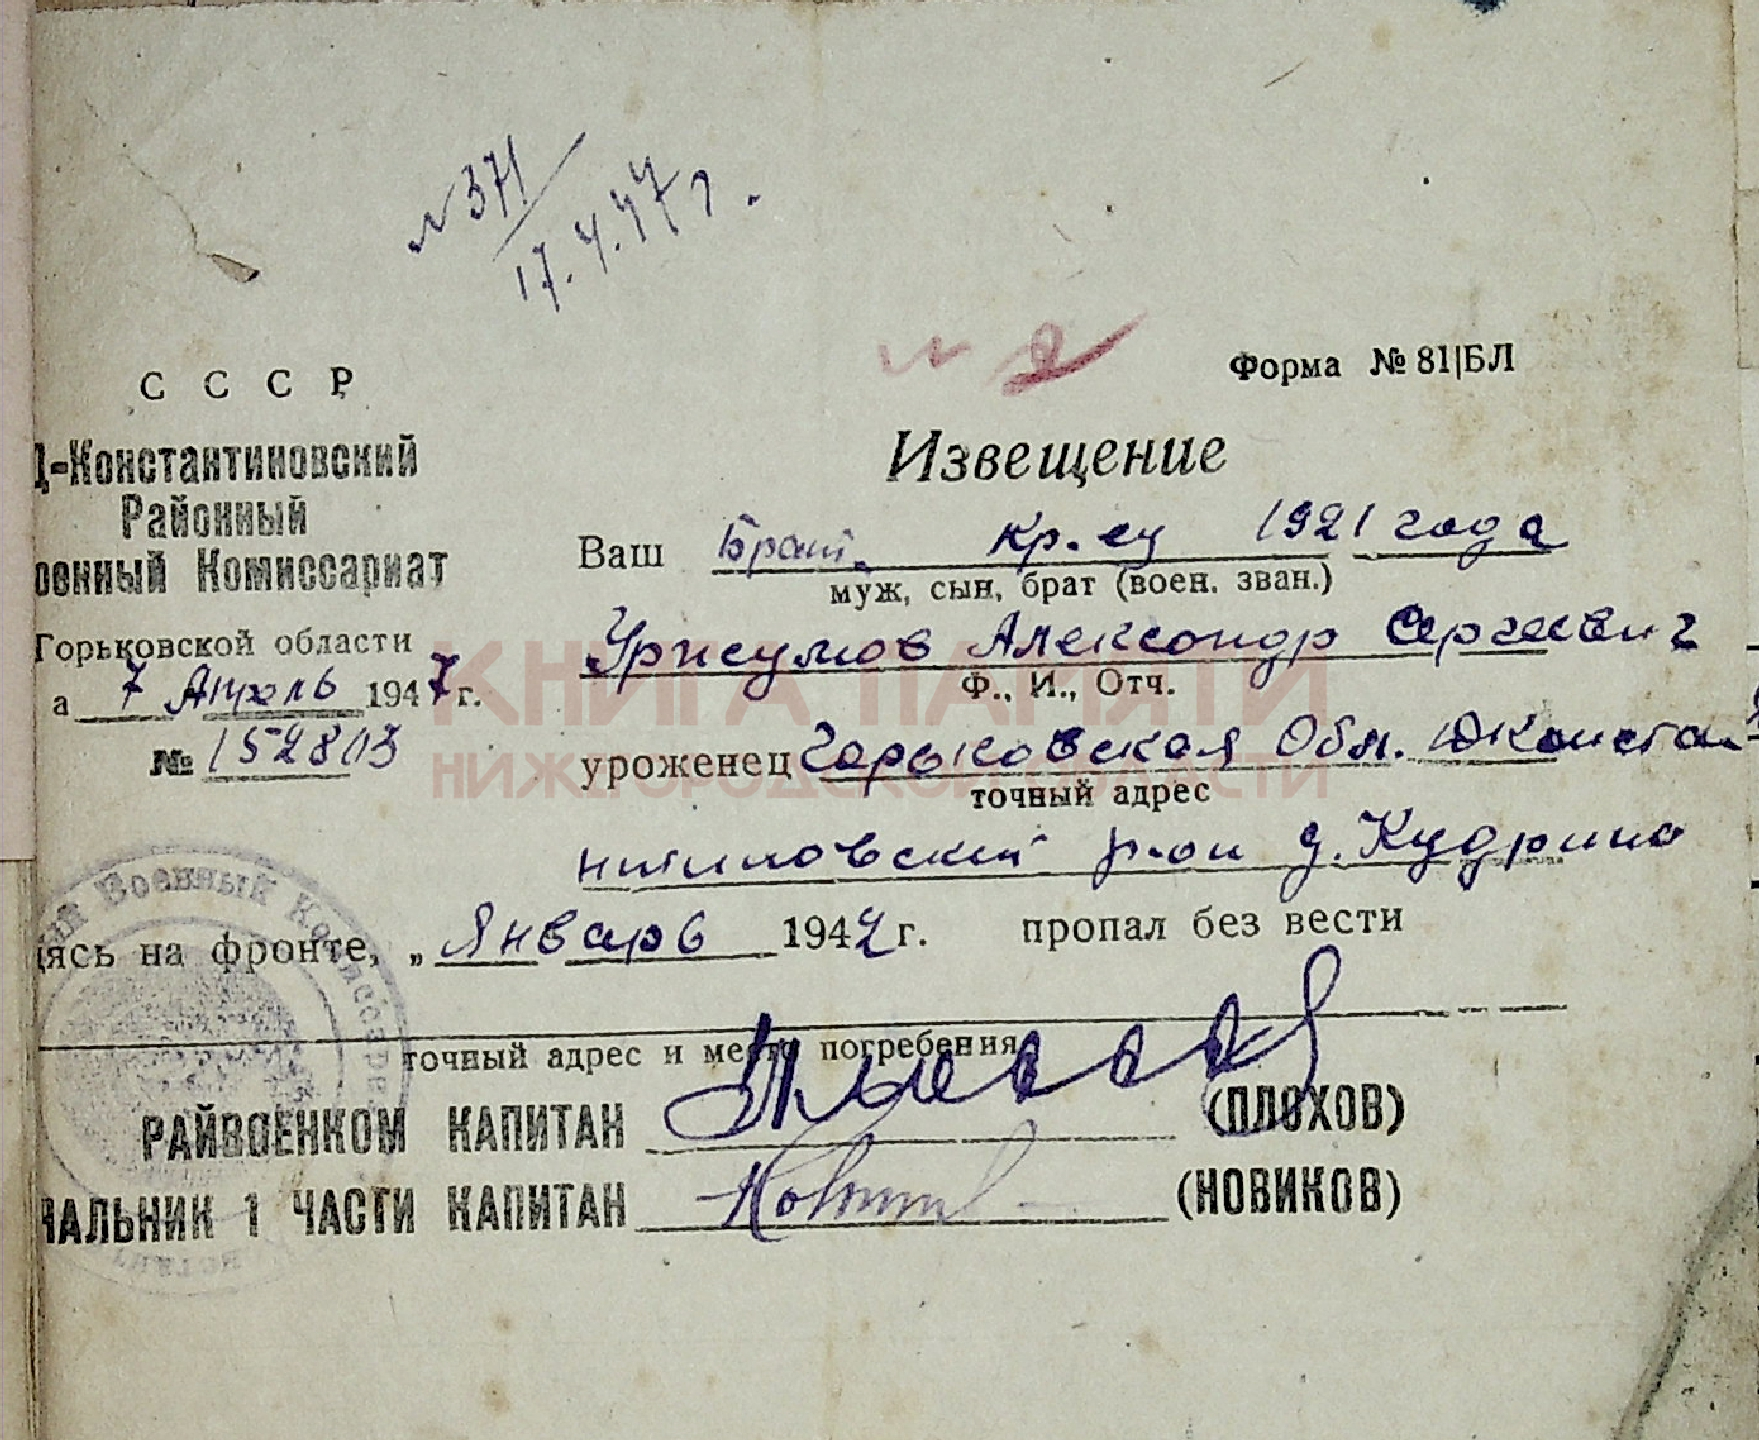 №371
17.4.47г.
№ 2
Форма № 81|БЛ
С С С Р
Д-Константиновский
Районный
оенный Комиссариат
Горьковской области
а 7 Апрель 1947 г.
№ 152803
Извещение
Ваш Брат. кр.ец 1921 года
муж, сын, брат (воен. зван.)
Урисумов Александр Сергеевич
Ф., И., Отч.
уроженец Горьковская Обл. Д Конста
точный адрес
нтиновский р-он д. Кудрино
ясь на фронте, „Январь 1942 г. пропал без вести
точный адрес и место погребения
РАЙВОЕНКОМ КАПИТАН (ПЛОХОВ)
ЧАЛЬНИК 1 ЧАСТИ КАПИТАН (НОВИКОВ)
Военный Комиссариат
КНИГА ПАМЯТИ
НИЖЕГОРОДСКОЙ ОБЛАСТИ